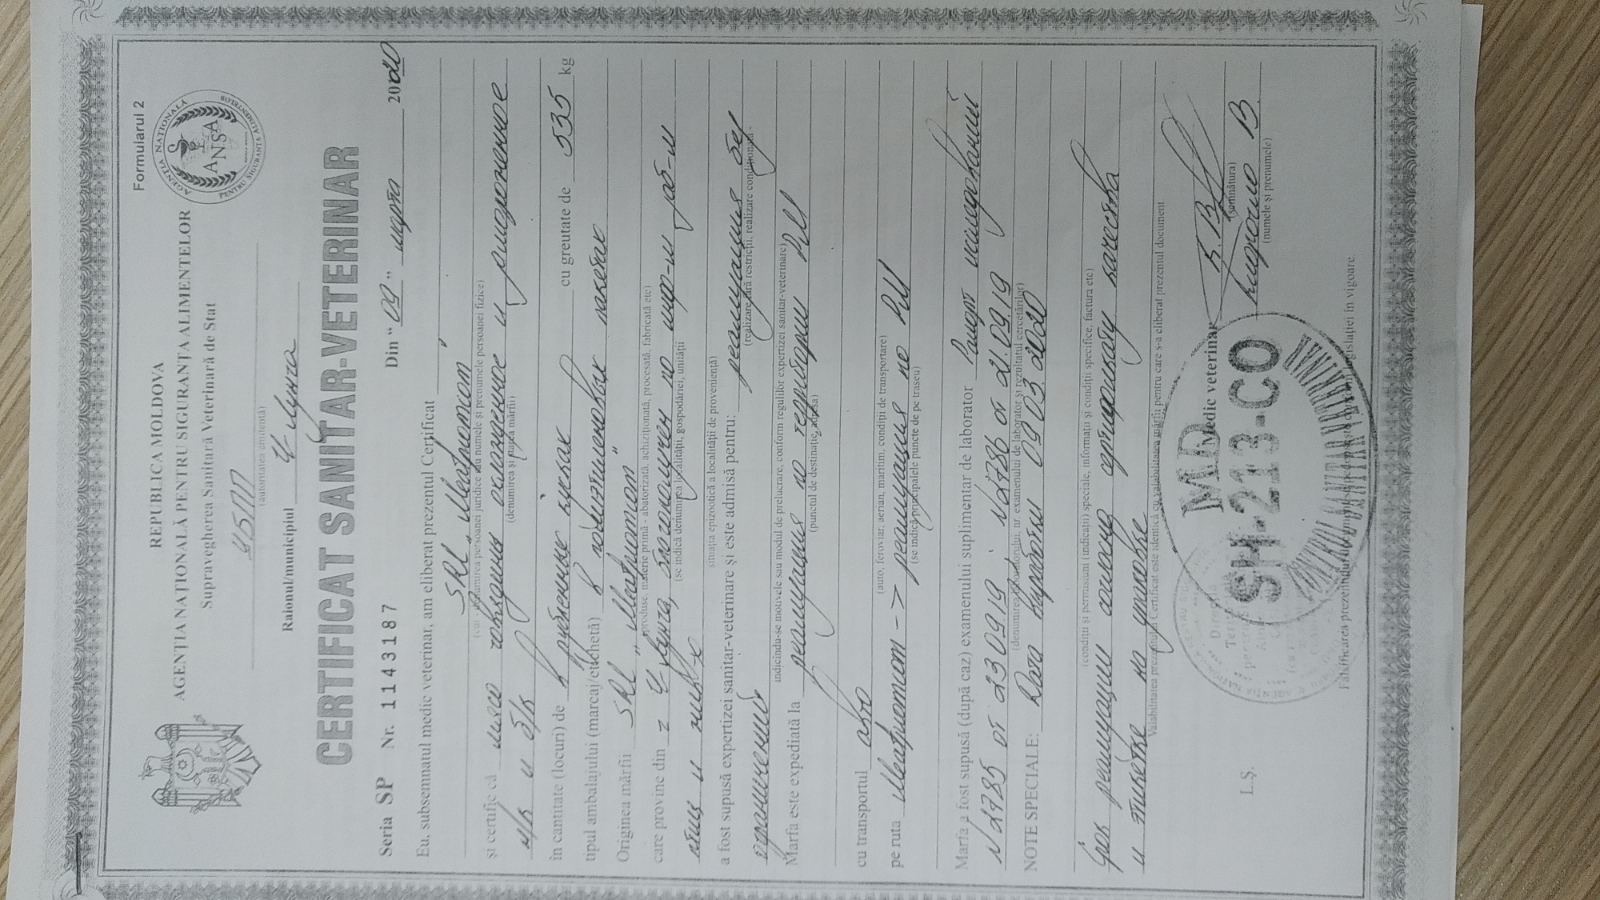 Formularul 2
REPUBLICA MOLDOVA
AGENȚIA NAȚIONALĂ PENTRU SIGURANȚA ALIMENTELOR
Supravegherea Sanitară Veterinară de Stat
AGENȚIA NAȚIONALĂ PENTRU SIGURANȚA ALIMENTELOR
ANSA
(autoritatea emitentă)
Raionul/municipiul
CERTIFICAT SANITAR-VETERINAR
Seria SP Nr. 1143187 Din "09" марта 2020
Eu, subsemnatul medic veterinar, am eliberat prezentul Certificat
SRL "Меатпотом"
(cui - denumirea persoanei juridice sau numele și prenumele persoanei fizice)
și certific că мясо говядина охлажденное и замороженное
м/к и б/к
(denumirea și tipul mărfii)
în cantitate (locuri) de cu greutate de 535 kg
tipul ambalajului (marcaj/etichetă) в полиэтиленовых пакетах
Originea mărfii SRL
(produse, materie primă - abatorizată, achiziționată, procesată, fabricată etc)
care provine din
(se indică denumirea localității, gospodăriei, unității
situația epizootică a localității de proveniență)
a fost supusă expertizei sanitar-veterinare și este admisă pentru: реализация без
(realizare fără restricții, realizare condiționată
ограничений
indicîndu-se motivele sau modul de prelucrare, conform regulilor expertizei sanitar-veterinare)
Marfa este expediată la реализация по территории РМ
(punctul de destinație, adresa)
cu transportul авто
(auto, feroviar, aerian, maritim, condiții de transportare)
pe ruta реализация по РМ
(se indică principalele puncte de pe traseu)
Marfa a fost supusă (după caz) examenului suplimentar de laborator
N2785 от 230919, N2786 от 21.09.19
(denumirea laboratorului, nr. examenului de laborator și rezultatul cercetărilor)
NOTE SPECIALE: Дата выработки 09 03 2020
(condiții și permisiuni (indicații) speciale, informații și condiții specifice, factura etc)
Срок реализации согласно сертификату качества
и этикетке на упаковке
Valabilitatea prezentului Certificat este identică cu valabilitatea mărfii pentru care s-a eliberat prezentul document
Medic veterinar
(semnătura)
(numele și prenumele)
L.Ș.
MD
SH-213-CO
CONTROL SANITAR VETERINAR
Falsificarea prezentului legislației în vigoare.